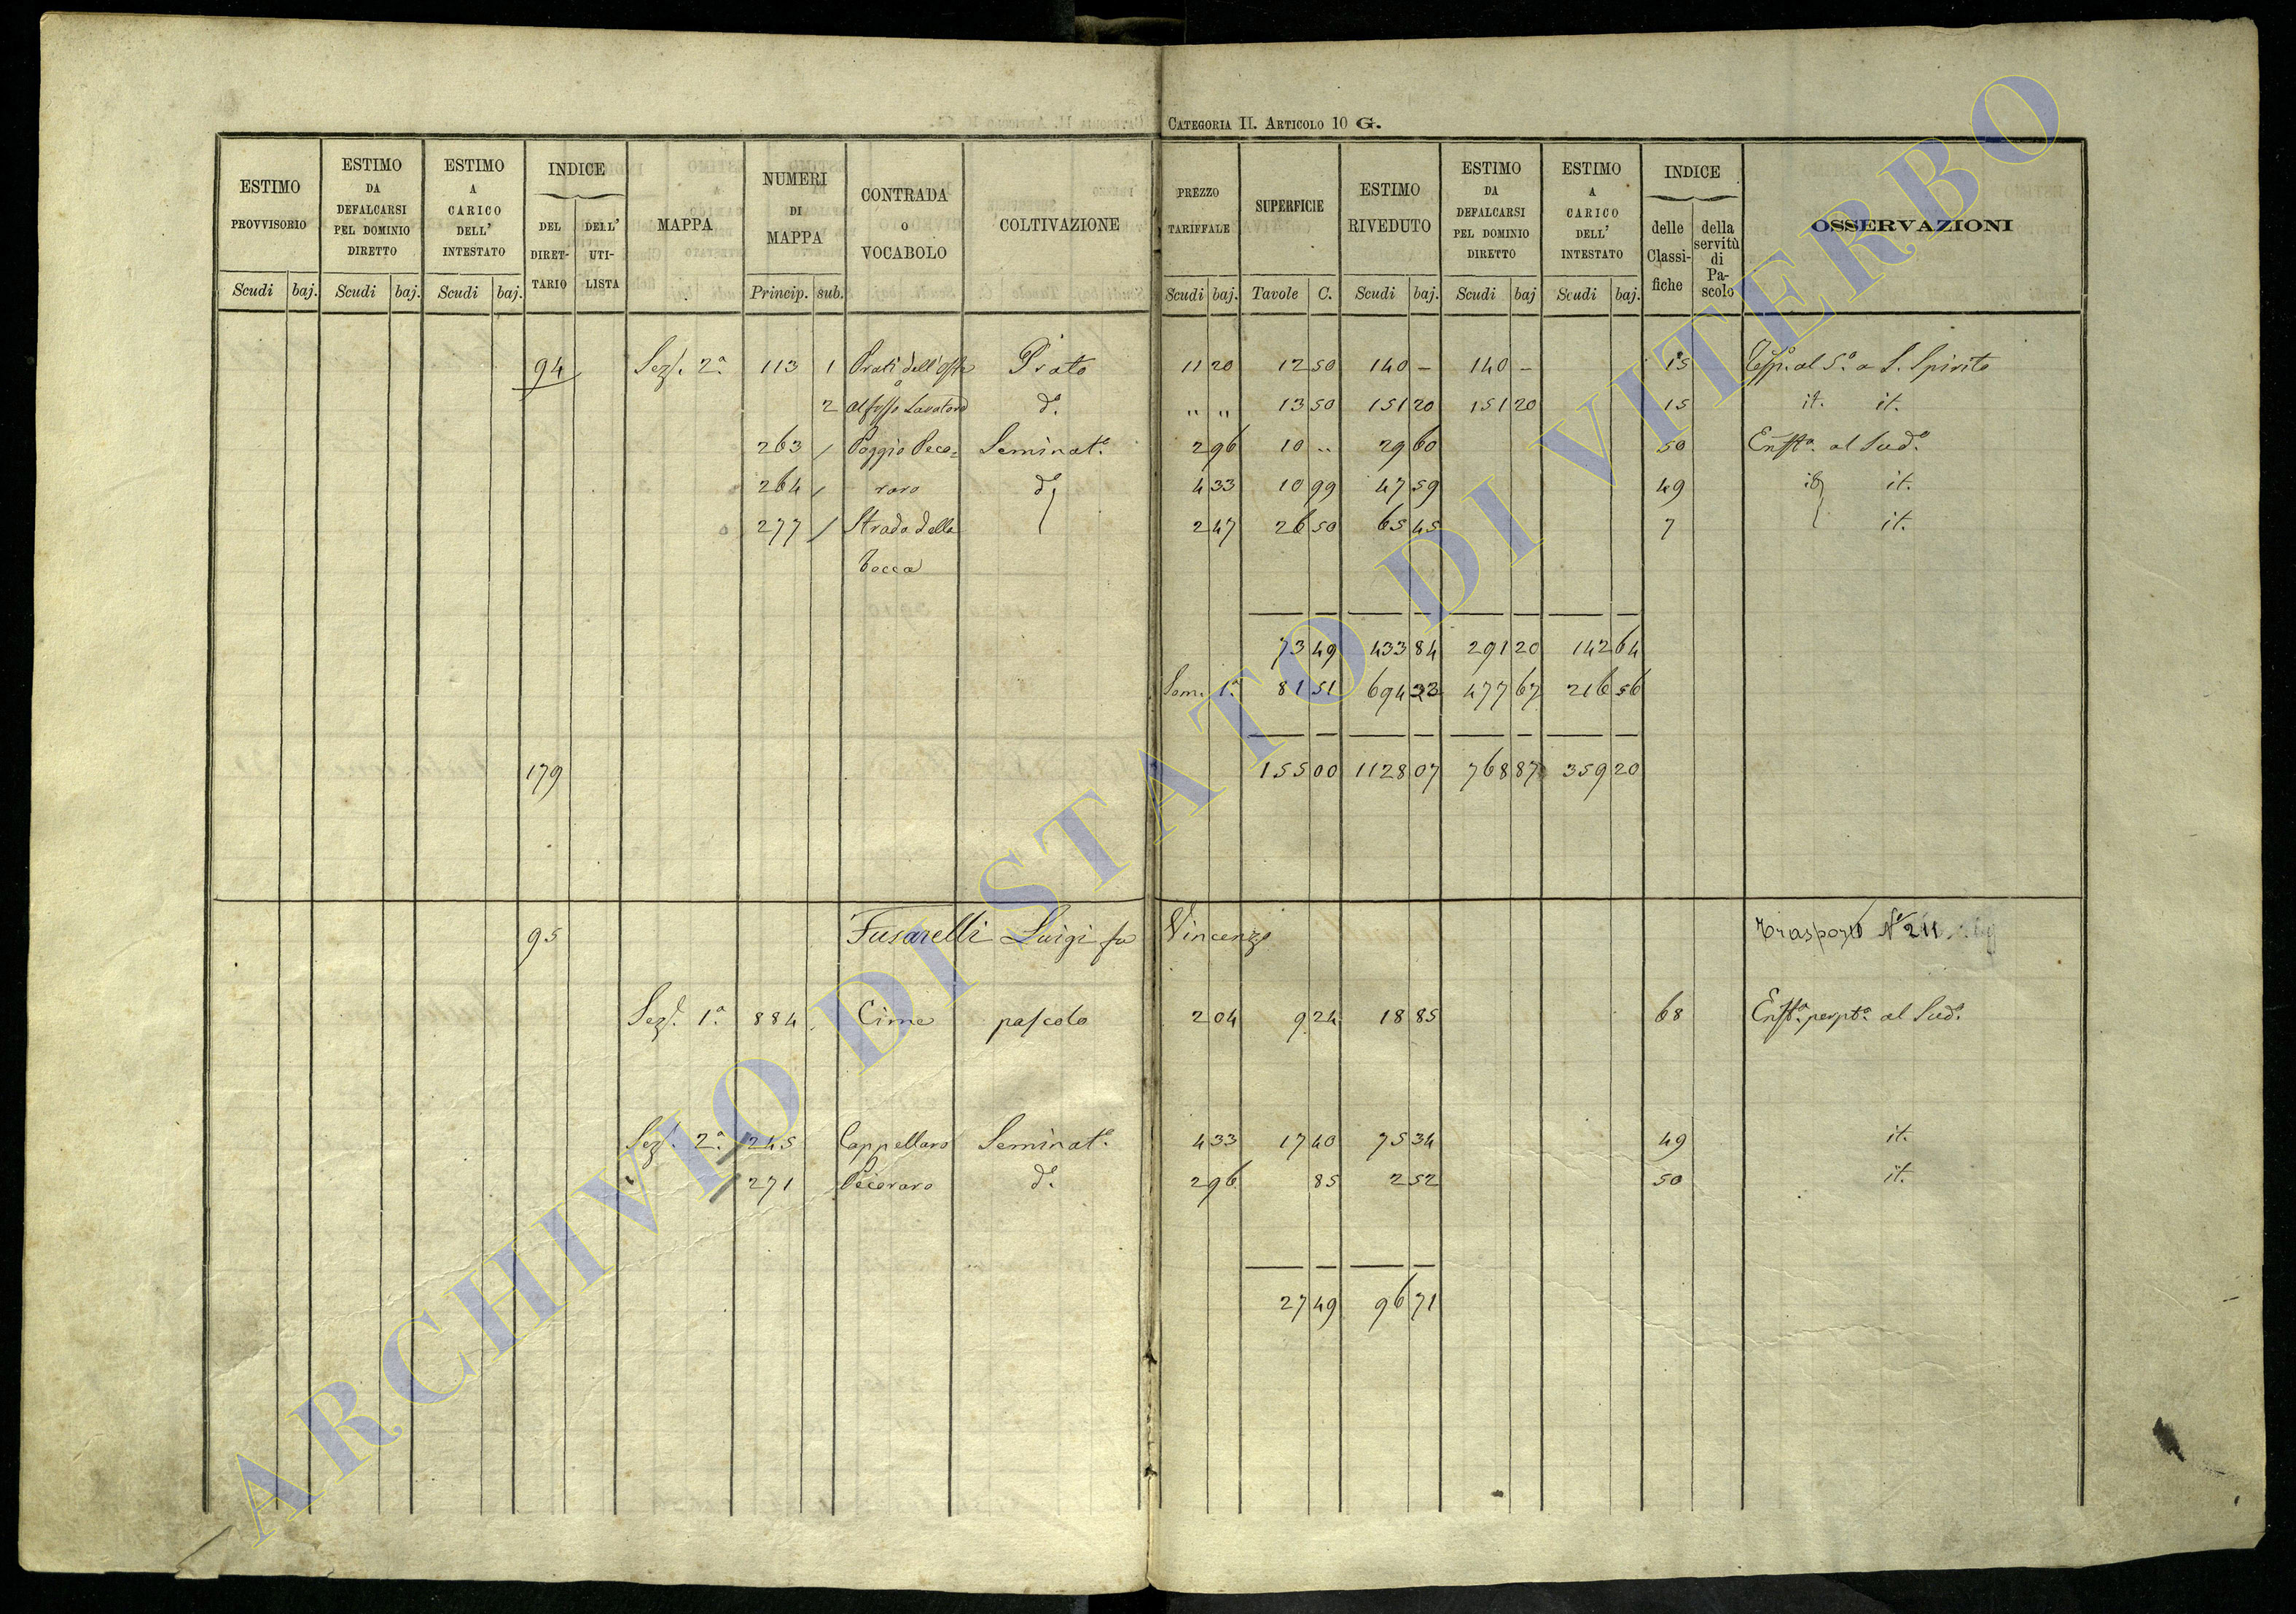 CATEGORIA II. ARTICOLO 10 G.
ESTIMO PROVVISORIO Scudi baj.
ESTIMO DA DEFALCARSI PEL DOMINIO DIRETTO Scudi baj.
ESTIMO A CARICO DELL' INTESTATO Scudi baj.
INDICE DEL DIRET- TARIO DELL' UTI- LISTA
MAPPA
NUMERI DI MAPPA Princip. sub.
CONTRADA o VOCABOLO
COLTIVAZIONE
PREZZO TARIFFALE Scudi baj.
SUPERFICIE Tavole C.
ESTIMO RIVEDUTO Scudi baj.
ESTIMO DA DEFALCARSI PEL DOMINIO DIRETTO Scudi baj
ESTIMO A CARICO DELL' INTESTATO Scudi baj.
INDICE delle Classi- fiche della servitù di Pa- scolo
OSSERVAZIONI
94 Sez. 2ª 113 1 Prati dell'Oste Prato 11 20 12 50 140 – 140 – 15 al S.º a S. Spirito
2 al fosso Lavatoro d.º " " 13 50 151 20 151 20 15 it. it.
263 / Poggio Peco= Seminat.º 2 96 10 .. 29 60 50 Enft.ª al Sud.º
264 / raro d.º 4 33 10 99 47 59 49 it. it.
277 / Strada della 2 47 26 50 65 45 7 it.
Rocca
73 49 433 84 291 20 142 64
Som. 1ª 81 51 694 23 477 67 216 56
179 155 00 1128 07 768 87 359 20
95 Fusarelli Luigi fu Vincenzo Trasporto Nº 211
Sez. 1ª 884 Cime pascolo 2 04 9 24 18 85 68 Enft.ª perpt.ª al Sud.º
Sez. 2ª 245 Cappellaro Seminat.º 4 33 17 40 75 34 49 it.
271 Pecoraro d.º 2 96 85 2 52 50 it.
27 49 96 71
ARCHIVIO DI STATO DI VITERBO